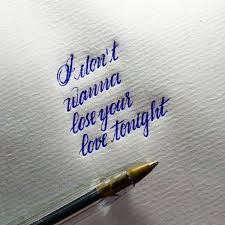 I don't
wanna
lose your
love tonight